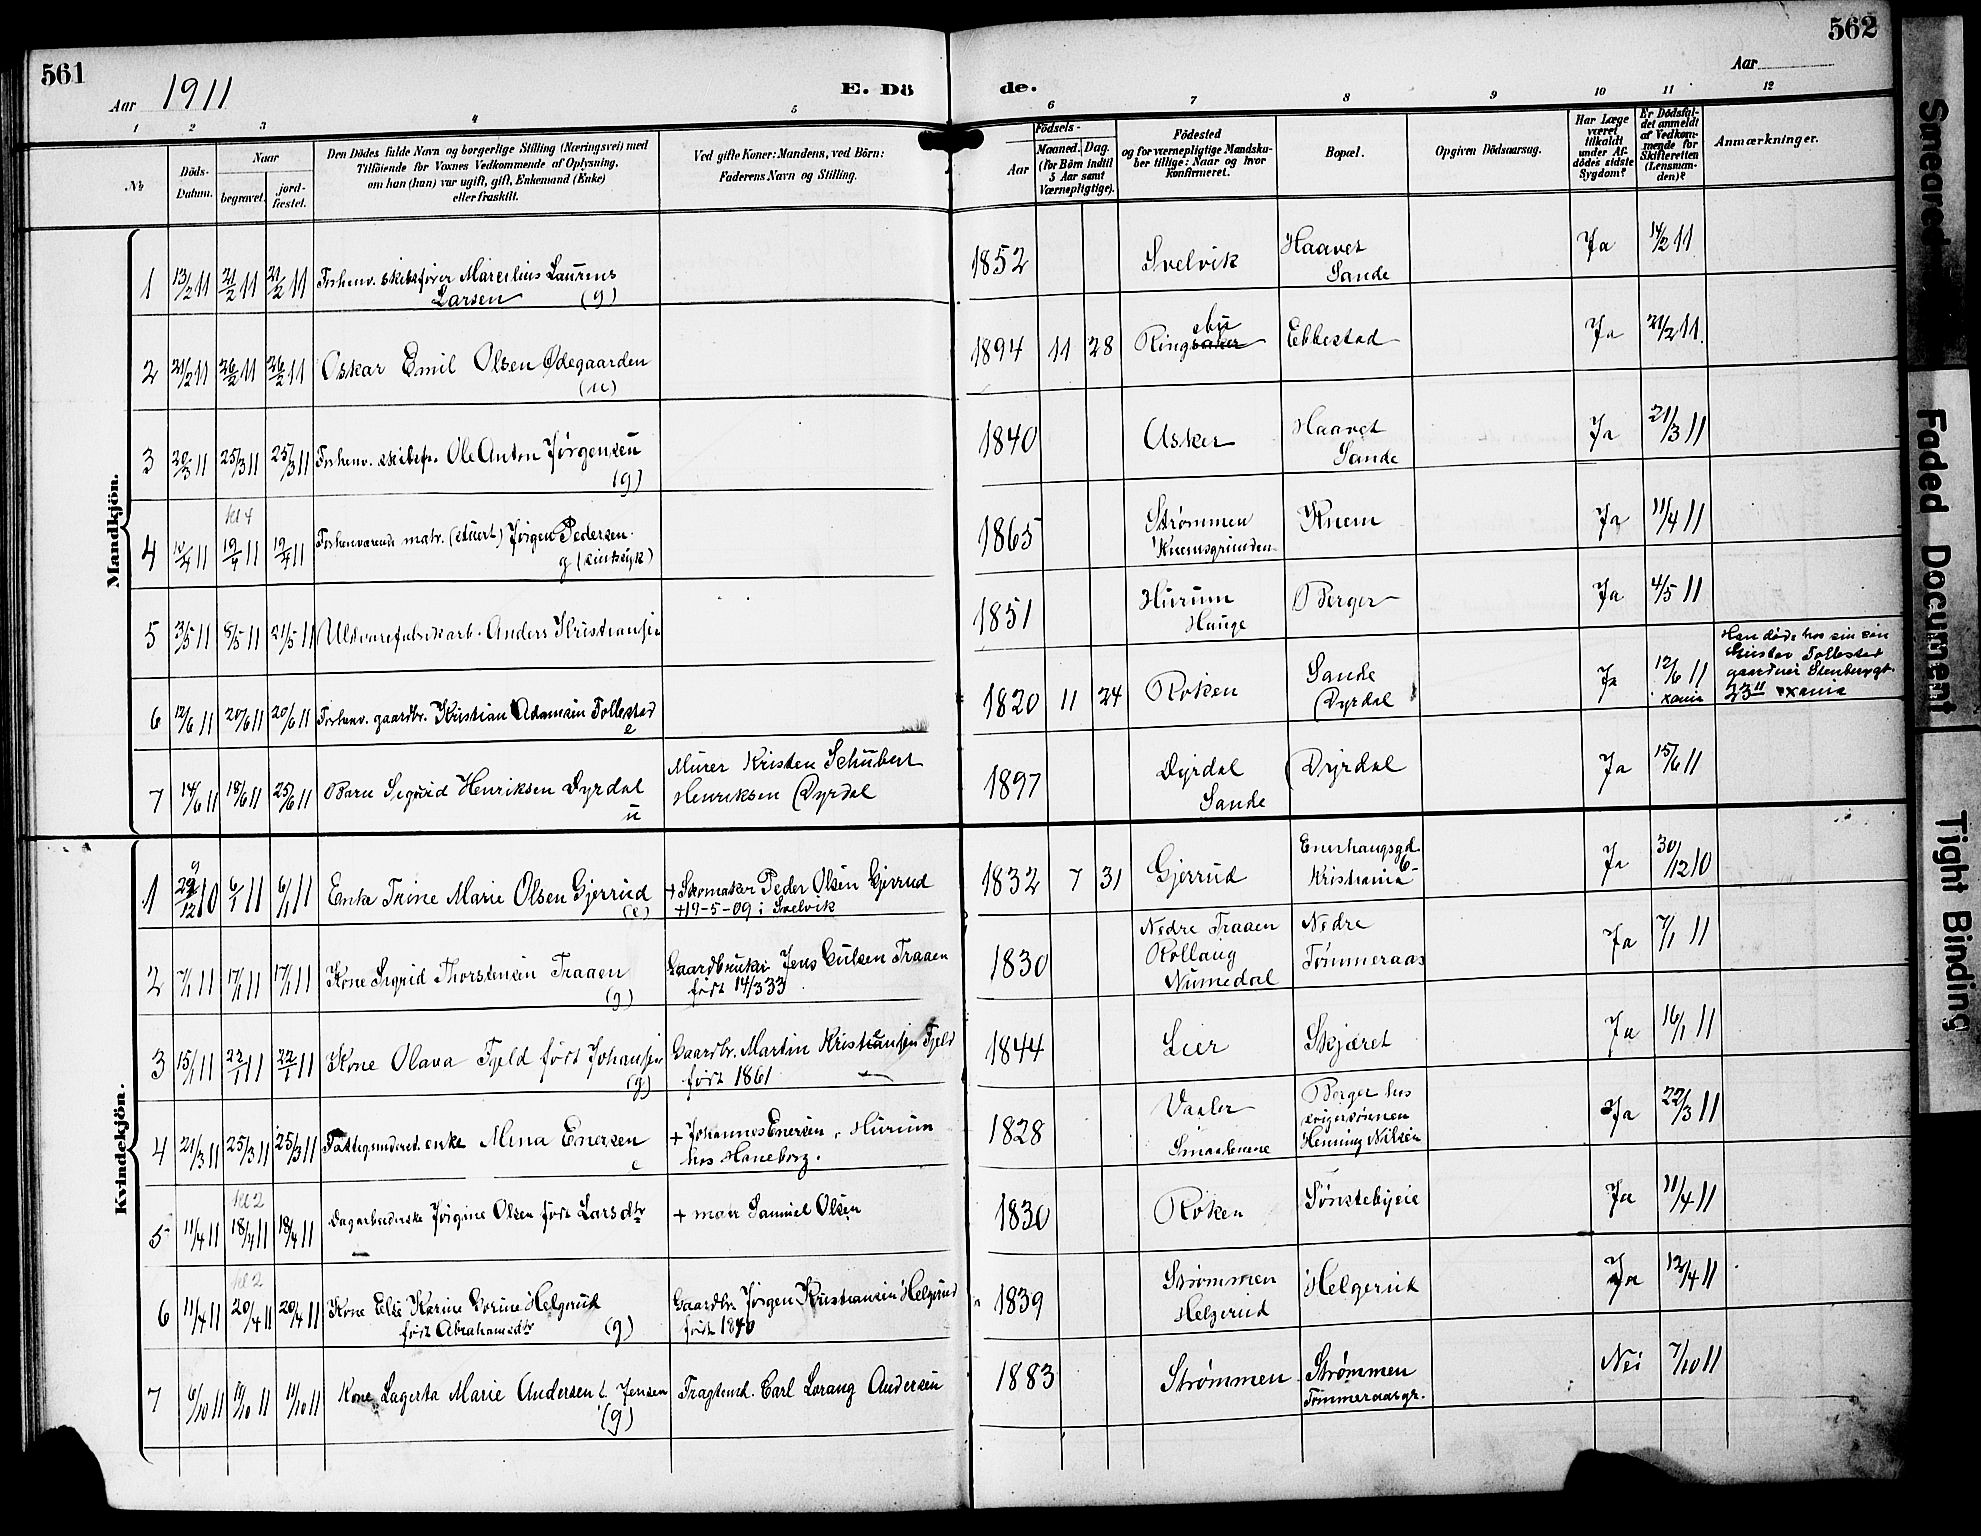 561
Aar 1911
E. Dö
de.
562
Aar
1
2
3
4
5
6
7
8
9
10
11
12
No
Döds-
Datum.
Naar
begravet.
jord-
fæstet.
Den Dödes fulde Navn og borgerlige Stilling (Næringsvei) med
Tilföiende for Voxnes Vedkommende af Oplysning,
om han (hun) var ugift, gift, Enkemand (Enke)
eller fraskilt.
Ved gifte Koner: Mandens, ved Börn:
Faderens Navn og Stilling.
Födsels-
Aar
Maaned. Dag.
(for Börn indtil
5 Aar samt
Værnepligtige).
Födested
og for værnepligtige Mandsku-
ber tillige: Naar og hvor
Konfirmeret.
Bopæl.
Opgiven Dödsaarsag.
Har Læge
været
tilkaldt
under Af-
dödes sidste
Sygdom?
Er Dödsfal-
det anmeldt
af Vedkom-
mende for
Skifteretten
(Lensman-
den)?
Anmærkninger.
Mandkjön.
1 13/2 11 21/2 11 21/2 11 Forhenv. skibsfører Marcilius Laurens
Larsen (g)
1852 Svelvik Haavet
Sande
Ja 14/2 11
2 21/2 11 26/2 11 26/2 11 Oskar Emil Olsen Ødegaarden
(u)
1894 11 28 Ringsaker ebu Ebbestad Ja 21/2 11
3 20/3 11 25/3 11 25/3 11 Forhenv. skibsfr. Ole Anton Jørgensen
(g)
1840 Asker Haavet
Sande
Ja 21/3 11
kl 4
4 10/4 11 19/4 11 19/4 11 Forhenværende matr. (stuert) Jørgen Pedersen
g (sindssyk)
1865 Strømmen
Knemsgrunden
Knem Ja 11/4 11
5 3/5 11 8/5 11 21/5 11 Uldvarefabrikarb. Anders Kristiansen
1851 Hurum
Hauge
Berger Ja 4/5 11
6 12/6 11 20/6 11 20/6 11 Forhenv. gaardbr. Kristian Adamsen Follestad
e
1820 11 24 Røken Sande
Dyrdal
Ja 12/6 11
xania
Han døde hos sin søn
Gustav Follestad
gaardeier Stenbergt.
23 II xania
7 14/6 11 18/6 11 25/6 11 Barn Sigurd Henriksen Dyrdal
u
Murer Kristen Schubert
Henriksen Dyrdal
1897 Dyrdal
Sande
Dyrdal Ja 15/6 11
Kvindekjön.
1 29/12 10 6/1 11 6/1 11 Enke Trine Marie Olsen Gjerrud
(e)
+ Skomaker Peder Olsen Gjerrud
+19-5-09 i Svelvik
1832 7 31 Gjerrud Enerhaugsgd.
6
Kristiania
Ja 30/12 10
2 7/1 11 17/1 11 17/1 11 Kone Sigrid Thorstensen Traaen
(g)
Gaardbruker Jens Eulsen Traaen
født 14/3 33
1830 Nedre Traaen
Rollaug
Numedal
Nedre
Tømmeraas
Ja 7/1 11
3 15/1 11 22/1 11 22/1 11 Kone Olava Fjeld født Johansen
(g)
Gaardbr. Martin Kristiansen Fjeld
født 1861
1844 Lier Skjæret Ja 16/1 11
4 21/3 11 25/3 11 25/3 11 Fattigunderst. enke Mina Enersen
e
+ Johannes Enersen, Hurum
hos Haneborg.
1828 Vaaler
Smaalenene
Berger hos
svigersønnen
Henning Nilsen
Ja 22/3 11
kl 2
5 11/4 11 18/4 11 18/4 11 Dagarbeiderske Jørgine Olsen født Larsdtr
+ matr Samuel Olsen
1830 Røken Sønstebyeie Ja 11/4 11
kl 2
6 11/4 11 20/4 11 20/4 11 Kone Else Karine Dorine Helgerud
født Abrahamsdtr (g)
Gaardbr. Jørgen Kristiansen Helgerud
født 1840
1839 Strømmen
Helgerud
Helgerud Ja 12/4 11
7 6/10 11 10/10 11 11/10 11 Kone Lagerta Marie Andersen f. Jensen
(g)
Fragtemd. Carl Lorang Andersen
1883 Strømmen Strømmen
Tømmeraasgr.
Nei 7/10 11
Smeared
Faded Document
Tight Binding